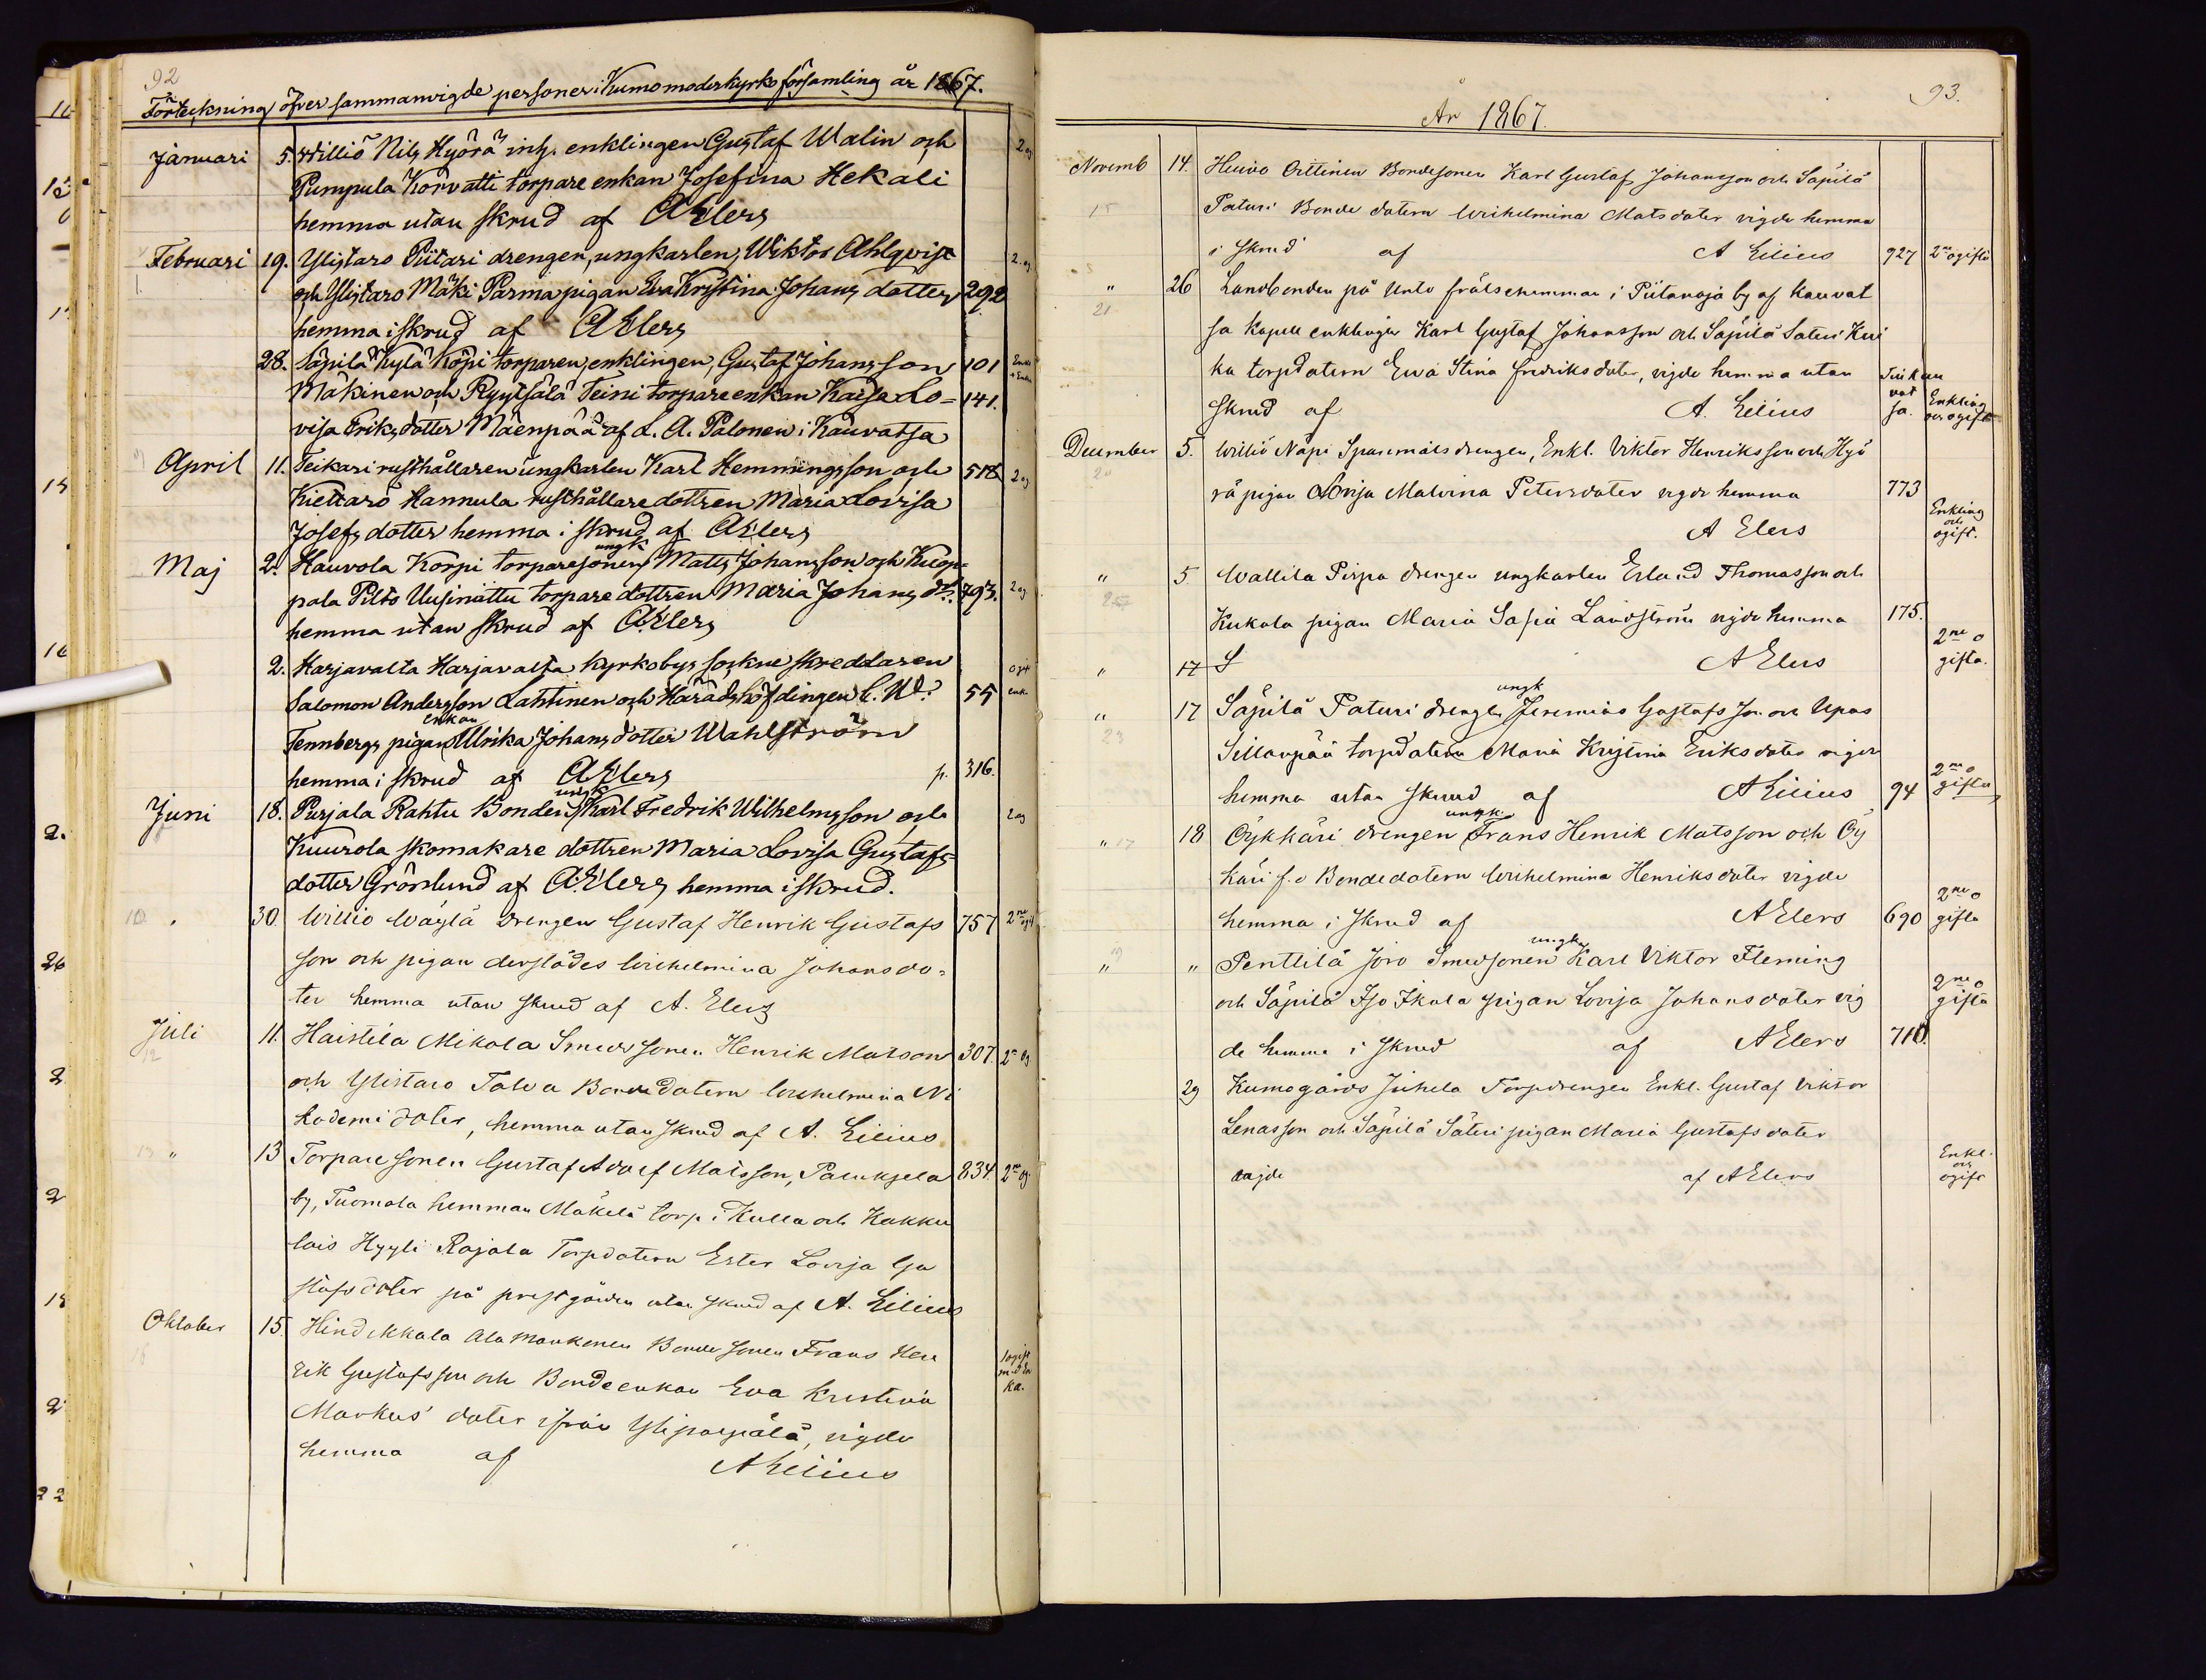 92
Förteckning öfver sammanvigde personer i Kumo moderkyrko församling år 1867.
Januari 5. Williö Nils Hyörä inh. enklingen Gustaf Walin och 2 og
Pumpula Korvatti torpare enkan Josefina Hekali
hemma utan skrud af A Elers
Februari 19. Ylistaro Piitari drengen, ungkarlen, Wiktor Ahlqvist 2. og
och Ylistaro Mäki Parma pigan Eva Kristina Johans dotter 292
hemma i skrud af A Elers
28. Säpilä Kylä Köpi torparen, enklingen, Gustaf Johansson 101
Mäkinen och Ryytsälä Teini torpare enkan Kaisa Lo= 141.
visa Eriks dotter Mäenpää af L. A. Palonen i Kauvatsa
April 11. Teikari rusthållaren ungkarlen Karl Hemmingsson och 518 2 og
Kiettare Hannula rusthållare dottren Maria Lovisa
Josefs dotter hemma i skrud af A Elers
Maj 2. Hauvola Korpi torparesonen ungk Matts Johansson och Kuop=
pala Pilts Uusiniittu torpare dottren Maria Johans dr. 793. 2 og
hemma utan skrud af A Elers
2. Harjavalta Harjavalta kyrkoby sockne skreddaren ogif
Salomon Andersson Lahtinen och Häradshöfdingen C. W. 55 enk
Tennbergs pigan enkan Ulrika Johans dotter Wahlström
hemma i skrud af A Elers p. 316.
Juni 18. Purjala Rahtu Bonden ungk Karl Fredrik Wilhelmsson och 2 og
Kuurola skomakare dottren Maria Lovisa Gustafs=
dotter Grönlund af A. Elers hemma i skrud.
30. Williö Wäylä drengen Gustaf Henrik Gustafs 757 2ne ogif
son och pigan derstädes Wilhelmina Johans do=
ter hemma utan skrud af A. Elers
Juli 11. Haistila Mikola Smeds sonen Henrik Matsson 307. 2ne og
och Ylistaro Talva Bondedotern Wilhelmina Ni
kodemi doter, hemma utan skrud af A. Lilius
" 13 Torpare sonen Gustaf Adolf Matsson, Paluksela 834 2ne og
by, Tuomola hemman Mäkelä torp i Kulla och Kakku
lais Hyyli Rajala Torpdotern Ester Lovisa Gu
stafsdoter på prestgården utan skrud af A. Lilius
Oktober 15. Hindikkala Ala Mankonen Bonde sonen Frans Hen
rik Gustafsson och Bondeenkan Eva Kristina 1 ogift med en ka.
Markus doter ifrån Ylipaspälä, vigde
hemma af A Lilius
93.
År 1867.
Novemb 14. Huivo Orttinen Bondesonen Karl Gustaf Johansson och Säpilä
Paturi Bonde dotern Wilhelmina Mats doter vigde hemma
i skrud af A Lilius 927 2ne ogifta
" 26 Landbonden på Unto frälsehemman i Piitanoja by af Kauvat
sa kapell enklingen Karl Gustaf Johansson och Säpilä Sateri Kui
ka torpdotern Eva Stina Fredriksdoter, vigde hemma utan
skrud af A. Lilius Enkling och ogift
December 5. Williö Näpi Spannmåls drengen, Enkl. Viktor Henriksson och Hyö
rä pigan Lovisa Malvina Petersdoter vigde hemma 773
A Elers Enkling och ogift.
" 5 Wallila Pirpa drengen ungkarlen Erland Thomasson och
Kukola pigan Maria Safia Landström vigde hemma 175.
" 17 S A Elers 2ne o gifta.
" 17 Säpilä Paturi drengen ungk Jeremias Gustafsson och Upas
Sillanpää torpdotern Maria Kristina Eriksdoter vigde
hemma utan skrud af A Lilius 94 2ne o gifta
" 18 Öykkäri drengen ungk Frans Henrik Matsson och Öy
käri f. d Bondedotern Wilhelmina Henriksdoter vigde
hemma i skrud af A Elers 690 2ne o gifta
" " Penttilä Jöro Smedsonen ungk Karl Viktor Fleming
och Säpilä Iso Ikala pigan Lovisa Johansdoter vig 2ne o gifta
de hemma i skrud af A Elers 710.
29 Kumogårds Juhela Torpdrengen Enkl. Gustaf Viktor
Lenasson och Säpilä Säteri pigan Maria Gustafsdoter
vigde af A Elers Enkl. och ogift